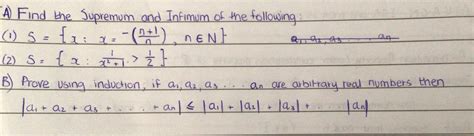 A) Find the Supremum and Infimum of the following:
(1) S = { x : x = -(n+1/n), n ∈ N }
a₁, a₂, a₃ ... aₙ
(2) S = { x : 1/x²+1 > 1/2 }
B) Prove using induction, if a₁, a₂, a₃ ... aₙ are arbitrary real numbers then
|a₁ + a₂ + a₃ + ... + aₙ| ≤ |a₁| + |a₂| + |a₃| + ... |aₙ|